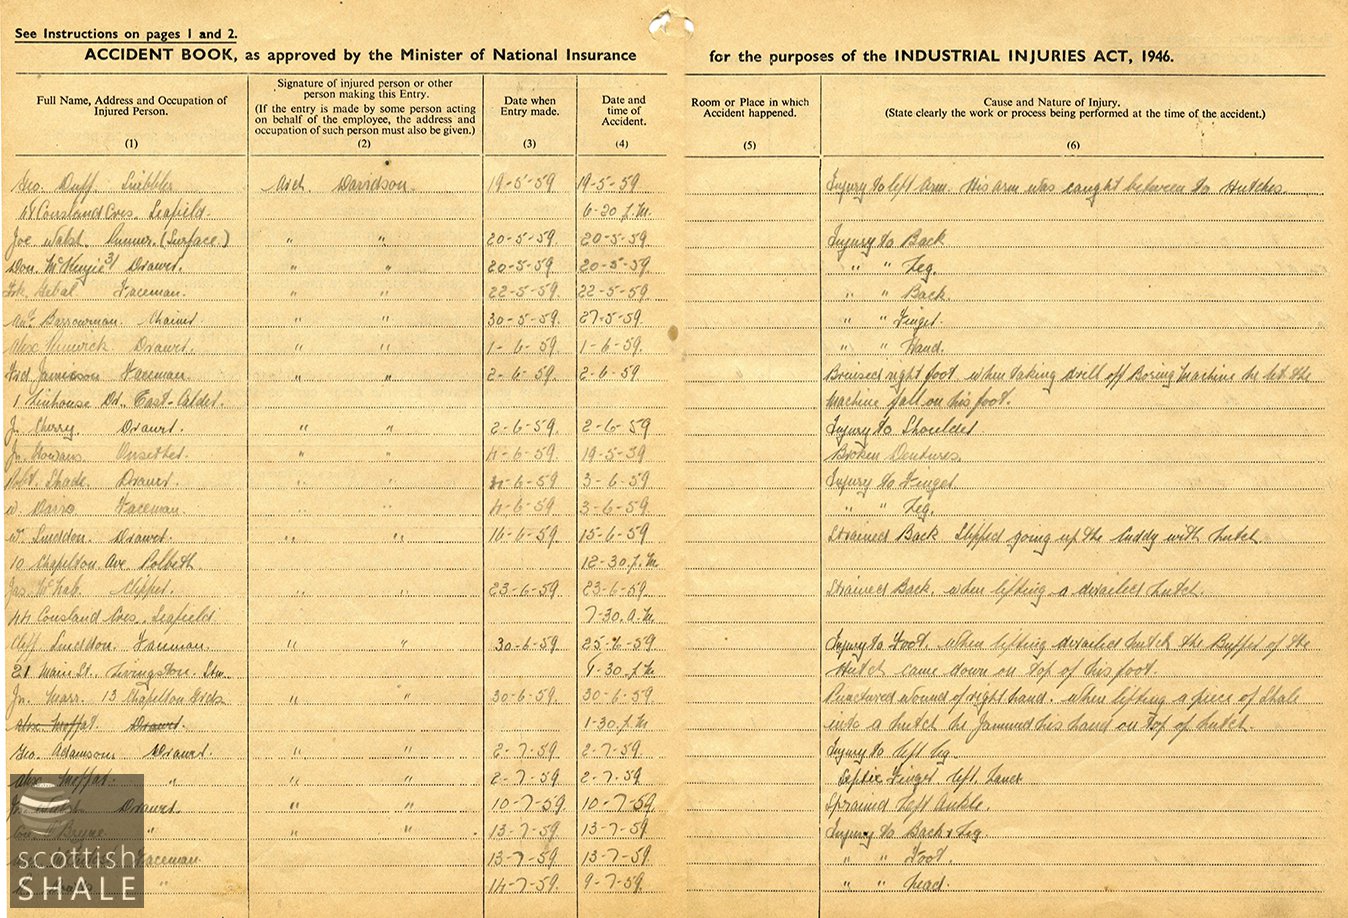 See Instructions on pages 1 and 2.
ACCIDENT BOOK, as approved by the Minister of National Insurance for the purposes of the INDUSTRIAL INJURIES ACT, 1946.
Full Name, Address and Occupation of Injured Person. (1)
Signature of injured person or other person making this Entry. (If the entry is made by some person acting on behalf of the employee, the address and occupation of such person must also be given.) (2)
Date when Entry made. (3)
Date and time of Accident. (4)
Room or Place in which Accident happened. (5)
Cause and Nature of Injury. (State clearly the work or process being performed at the time of the accident.) (6)
Geo. Duff. Scribbler Arch. Davidson. 19-5-59 19-5-59 Injury to left Arm. His arm was caught between two Hutches.
Cousland Cres. Seafield. 6-20 p.m.
Joe (Surface.) " " 20-5-59. 20-5-59. Injury to Back
Don. McKenzie Drawer. " " 20-5-59. 20-5-59. " " Leg.
Faceman. " " 22-5-59. 22-5-59. " " Back.
Barrowman. " " 30-5-59. 27-5-59. " " Finger.
Alex Drawer. " " 1-6-59. 1-6-59. " " Hand.
Jamieson Faceman " " 2-6-59. 2-6-59. Bruised right foot when taking drill off Boring Machine he let the
1 Linhouse Dr. East-Calder. Machine fall on his foot.
Jn. Cherry Drawer. " " 2-6-59. 2-6-59 Injury to Shoulder.
Jn. Gowans Onsetter. " " 4-6-59. 19-5-59 Broken Dentures.
Shade. Drawer. " " 6-59. 3-6-59 Injury to Finger
W. Faceman. " " 4-6-59. 3-6-59. " " Leg.
W. Sneddon. Drawer. " " 16-6-59. 15-6-59. Strained Back Slipped going up the Cuddy with hutch.
10 Chapelton Ave. Polbeth 12-30 p.m
Jas. McNab. Clipper. " " 23-6-59. 23-6-59. Strained Back. when lifting a derailed hutch.
44 Cousland Cres. Seafield 7-30. a.m.
Cliff Sneddon. " " 30-6-59. 25-6-59 Injury to Foot. When lifting derailed hutch the Buffer of the
21 Main St. Livingston. Stn. -30 p.m Hutch came down on top of his foot.
Jn. Marr. 13 Chapelton Gdns " " 30-6-59. 30-6-59 Punctured wound of right hand. when lifting a piece of Shale
Alex Moffat. Drawer. 1-30 p.m into a hutch he Jammed his hand on top of hutch.
Geo. Adamson. Drawer. " " 2-7-59. 2-7-59. Injury to left leg
Alex Moffat. " " " 2-7-59. 2-7-59. Septic Finger left hand
Drawer " " 10-7-59. 10-7-59. Sprained left Ankle.
Bryne " " " 13-7-59. 13-7-59. Injury to Back & Leg.
Faceman. 13-7-59. 13-7-59. " " Foot.
" 14-7-59. 9-7-59. " " head.
scottish
SHALE